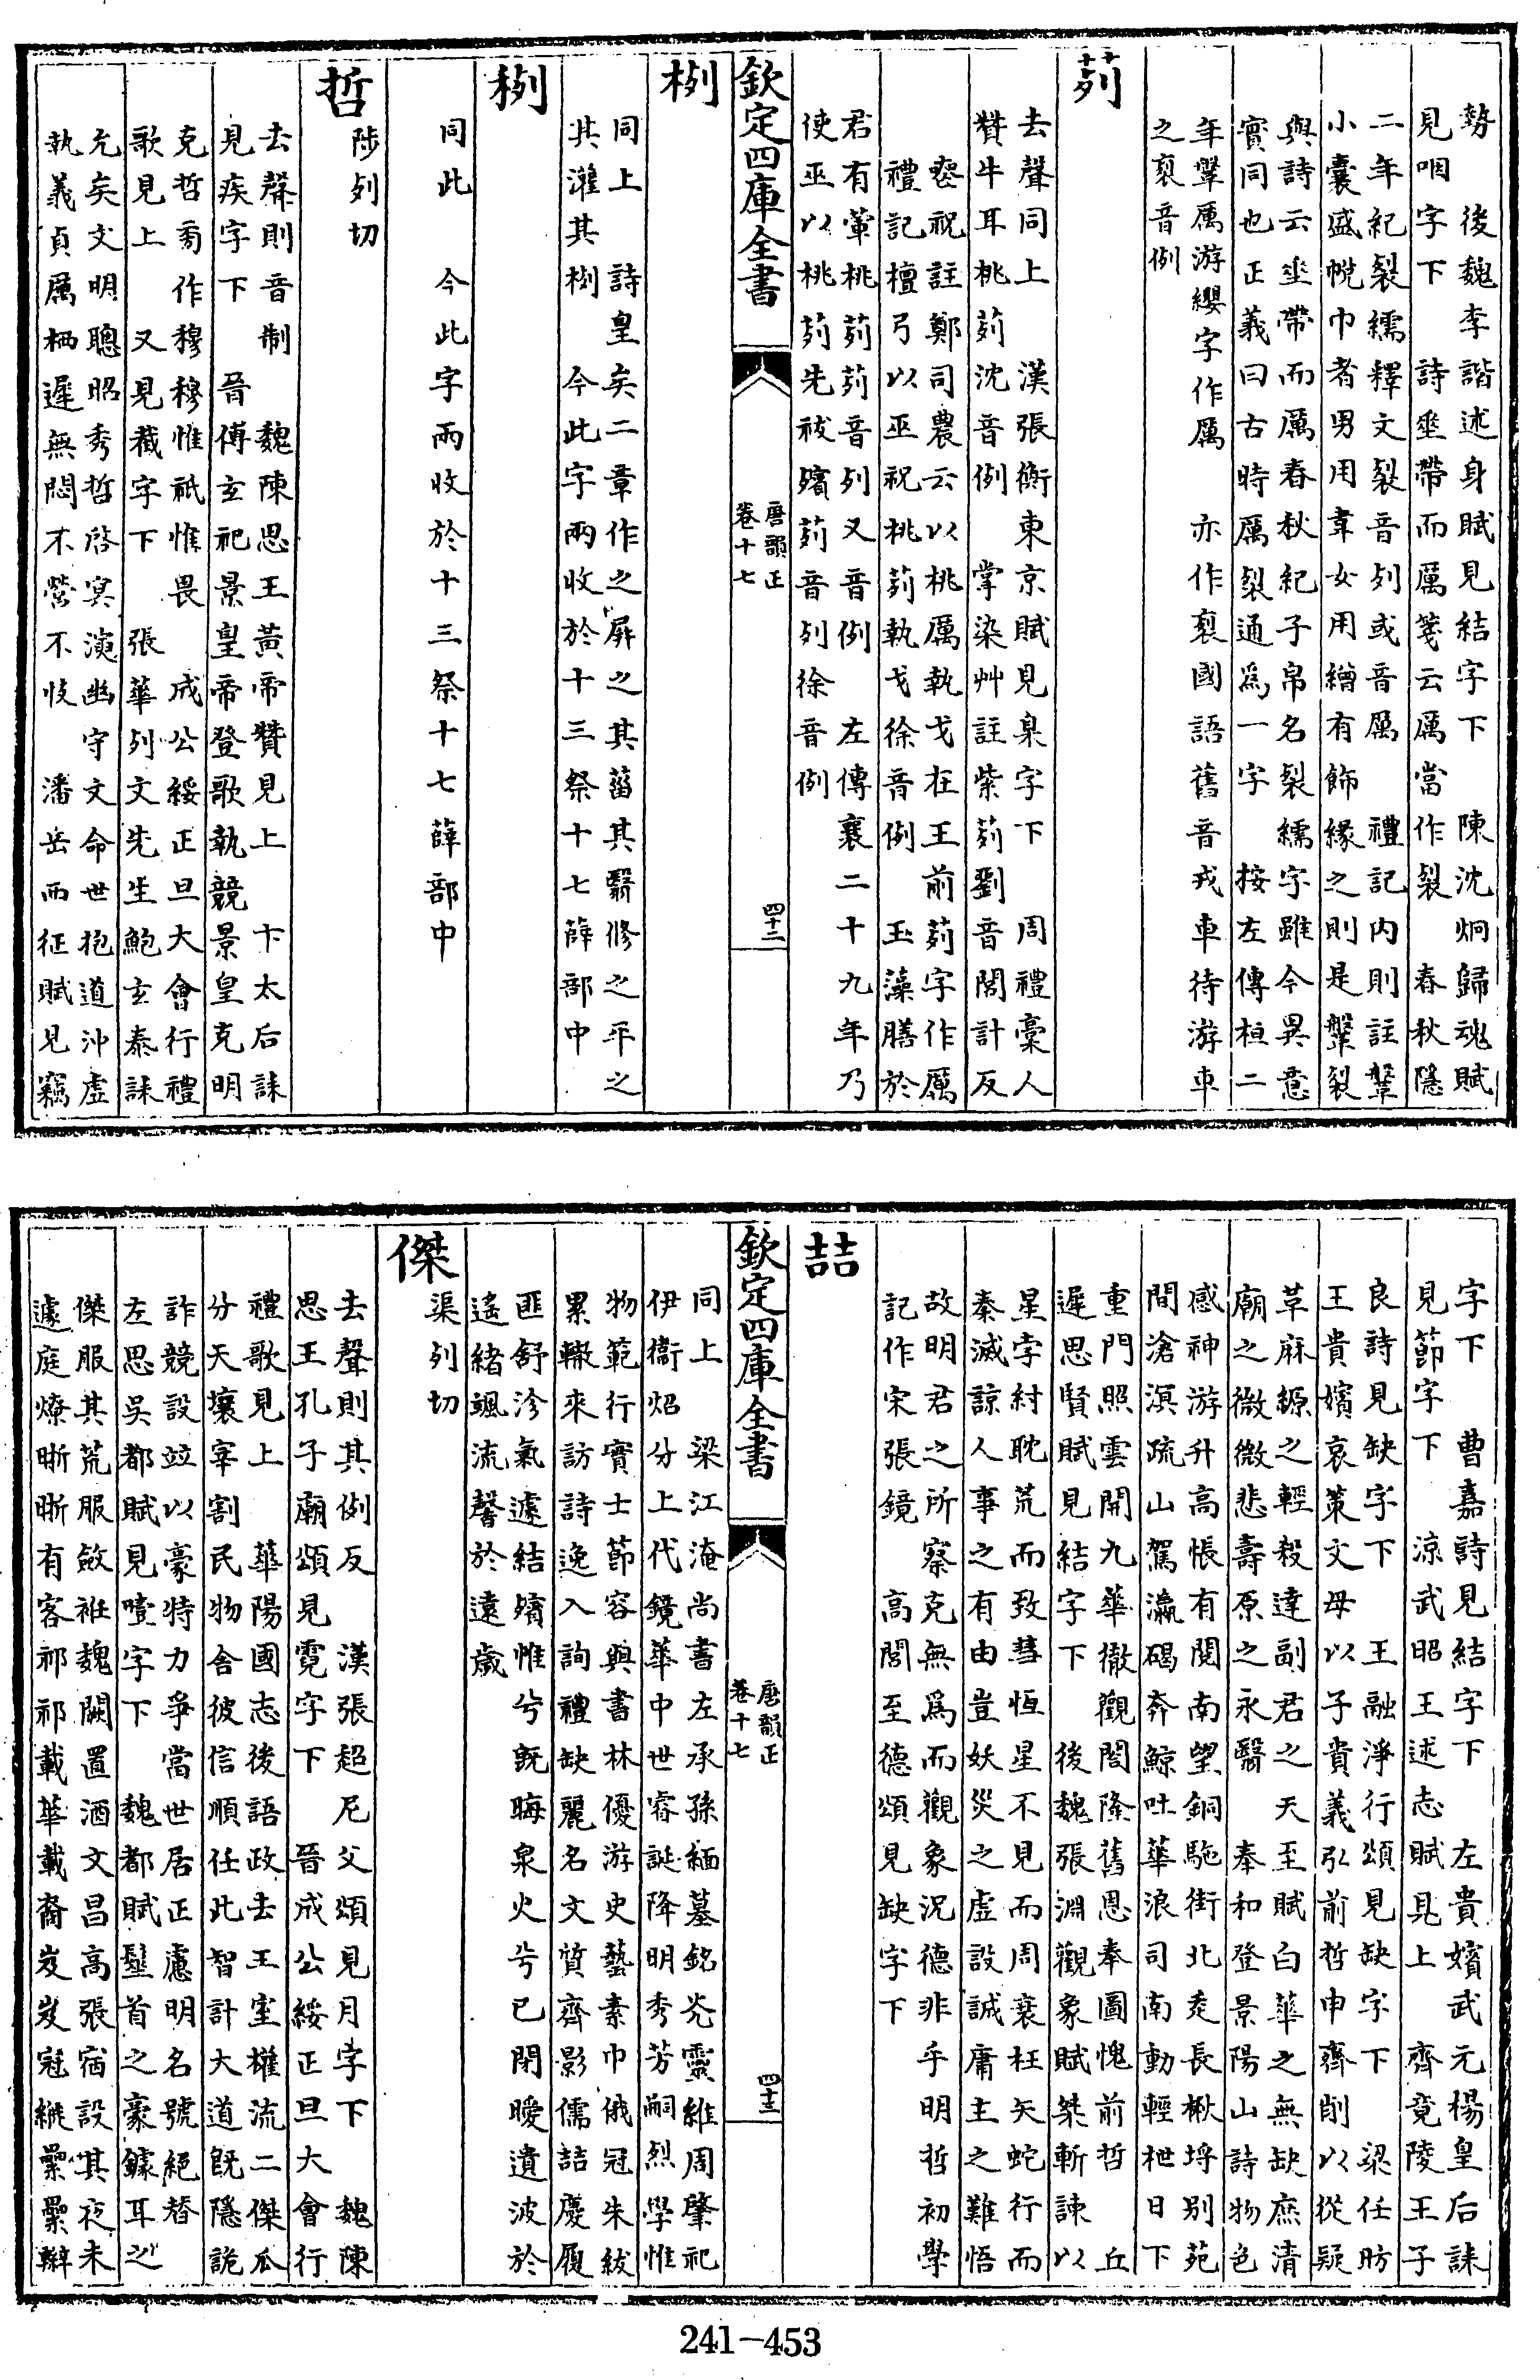 勢　後魏李諧述身賦見結字下　陳沈炯歸魂賦
見咽字下　詩垂帶而厲箋云厲當作裂　春秋隱
二年紀裂繻釋文裂音列或音厲　禮記內則註鞶
小囊盛帨巾者男用韋女用繒有飾緣之則是鞶裂
與詩云垂帶而厲春秋紀子帛名裂繻字雖今異意
實同也正義曰古時厲裂通爲一字　按左傳桓二
年鞶厲游纓字作厲　亦作裂國語舊音戎車待游車
之裂音例
茢
去聲同上　漢張衡東京賦見臬字下　周禮稾人
贊牛耳桃茢沈音例　掌染艸註紫茢劉音閭計反
喪祝註鄭司農云以桃厲執戈在王前茢字作厲
禮記檀弓以巫祝桃茢執戈徐音例　玉藻膳於
君有葷桃茢茢音列又音例　左傳襄二十九年乃
使巫以桃茢先祓殯茢音列徐音例
欽定四庫全書
唐韻正
卷十七
四十二
栵
同上　詩皇矣二章作之屏之其菑其翳修之平之
其灌其栵　今此字兩收於十三祭十七薛部中
栵
同此　今此字兩收於十三祭十七薛部中
哲
陟列切
去聲則音制　魏陳思王黃帝贊見上　卞太后誄
見疾字下　晉傅玄祀景皇帝登歌執競景皇克明
克哲旁作穆穆惟祇惟畏　成公綏正旦大會行禮
歌見上　又見截字下　張華列文先生鮑玄泰誄
允矣文明聰昭秀哲啓冥演幽守文命世抱道沖虛
執義貞厲栖遲無悶不營不忮　潘岳西征賦見竊
字下　曹嘉詩見結字下　左貴嬪武元楊皇后誄
見節字下　涼武昭王述志賦見上　齊竟陵王子
良詩見缺字下　王融淨行頌見缺字下　梁任昉
王貴嬪哀策文母以子貴義弘前哲申齊削以從疑
草麻縓之輕殺達副君之天至賦白華之無缺庶清
廟之微微悲壽原之永翳　奉和登景陽山詩物色
感神游升高悵有閱南望銅駞街北走長楸埒別苑
間滄溟疏山駕瀛碣奔鯨吐華浪司南動輕枻日下
重門照雲開九華徹觀閣隆舊恩奉圖愧前哲　丘
遲思賢賦見結字下　後魏張淵觀象賦桀斬諫以
星孛紂耽荒而致彗恆星不見而周衰枉矢蛇行而
秦滅諒人事之有由豈妖災之虛設誠庸主之難悟
故明君之所察克無爲而觀象況德非乎明哲初學
記作宋張鏡　高閭至德頌見缺字下
喆
欽定四庫全書
唐韻正
卷十七
四十三
同上　梁江淹尚書左承孫緬墓銘炎靈維周肇祀
伊衞炤分上代鏡華中世睿誕降明秀芳嗣烈學惟
物範行實士節容與書林優游史藝素巾俄冠朱紱
累轍來訪詩逸入詢禮缺麗名文質齊影儒喆慶履
匪舒沴氣遽結殯惟兮旣晦泉火兮已閉曖遺波於
遙緒颯流馨於遠歲
傑
渠列切
去聲則其例反　漢張超尼父頌見月字下　魏陳
思王孔子廟頌見霓字下　晉成公綏正旦大會行
禮歌見上　華陽國志後語政去王室權流二傑瓜
分天壤宰割民物舍彼信順任此智計大道旣隱詭
詐競設竝以豪特力爭當世居正慮明名號絕替
左思吳都賦見噎字下　魏都賦髽首之豪鐻耳之
傑服其荒服斂衽魏闕置酒文昌高張宿設其夜未
遽庭燎晣晣有客祁祁載華載裔岌岌冠縰纍纍辮
241-453